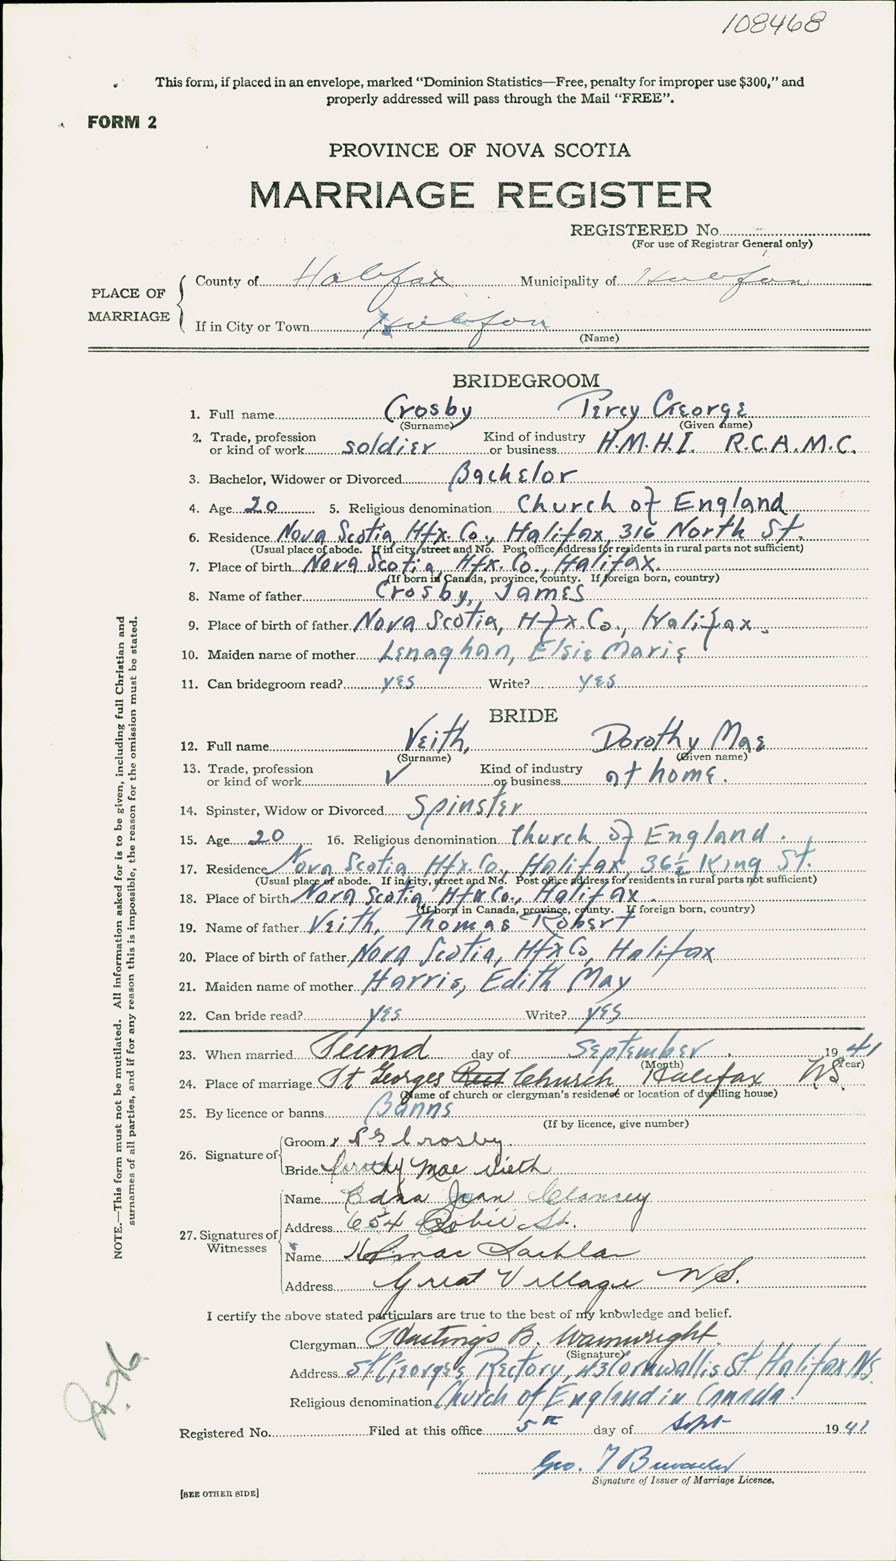 108468
This form, if placed in an envelope, marked "Dominion Statistics—Free, penalty for improper use $300," and
properly addressed will pass through the Mail "FREE".
FORM 2
PROVINCE OF NOVA SCOTIA
MARRIAGE REGISTER
REGISTERED No.
(For use of Registrar General only)
PLACE OF MARRIAGE
County of Halifax Municipality of Halifax
If in City or Town Halifax
(Name)
BRIDEGROOM
1. Full name Crosby Percy George
(Surname) (Given name)
2. Trade, profession or kind of work soldier Kind of industry or business H.M.H.I. R.C.A.M.C.
3. Bachelor, Widower or Divorced Bachelor
4. Age 20 5. Religious denomination Church of England
6. Residence Nova Scotia, Hfx. Co., Halifax, 316 North St.
(Usual place of abode. If in city, street and No. Post office address for residents in rural parts not sufficient)
7. Place of birth Nova Scotia, Hfx. Co., Halifax.
(If born in Canada, province, county. If foreign born, country)
8. Name of father Crosby, James
9. Place of birth of father Nova Scotia, Hfx. Co., Halifax.
10. Maiden name of mother Lenaghan, Elsie Marie
11. Can bridegroom read? yes Write? yes
BRIDE
12. Full name Veith, Dorothy Mae
(Surname) (Given name)
13. Trade, profession or kind of work ✓ Kind of industry or business at home.
14. Spinster, Widow or Divorced Spinster
15. Age 20 16. Religious denomination Church of England.
17. Residence Nova Scotia Hfx. Co., Halifax, 36½ King St.
(Usual place of abode. If in city, street and No. Post office address for residents in rural parts not sufficient)
18. Place of birth Nova Scotia Hfx Co., Halifax
(If born in Canada, province, county. If foreign born, country)
19. Name of father Veith, Thomas Robert
20. Place of birth of father Nova Scotia, Hfx Co, Halifax
21. Maiden name of mother Harris, Edith May
22. Can bride read? yes Write? yes
23. When married Second day of September 1941
(Month) (Year)
24. Place of marriage St Georges Church Halifax NS.
(Name of church or clergyman's residence or location of dwelling house)
25. By licence or banns Banns
(If by licence, give number)
26. Signature of
Groom x P G Crosby
Bride Dorothy Mae Vieth
27. Signatures of Witnesses
Name Edna Jean Clancey
Address 654 Robie St.
Name Lachlan
Address Great Village N.S.
I certify the above stated particulars are true to the best of my knowledge and belief.
Clergyman Hastings B. Wainwright
(Signature)
Address St George's Rectory, Cornwallis St Halifax N.S.
Religious denomination Church of England in Canada.
Registered No. Filed at this office 5th day of Sept 1941
Geo.
Signature of Issuer of Marriage Licence.
[SEE OTHER SIDE]
NOTE.—This form must not be mutilated. All information asked for is to be given, including full Christian and
surnames of all parties, and if for any reason this is impossible, the reason for the omission must be stated.